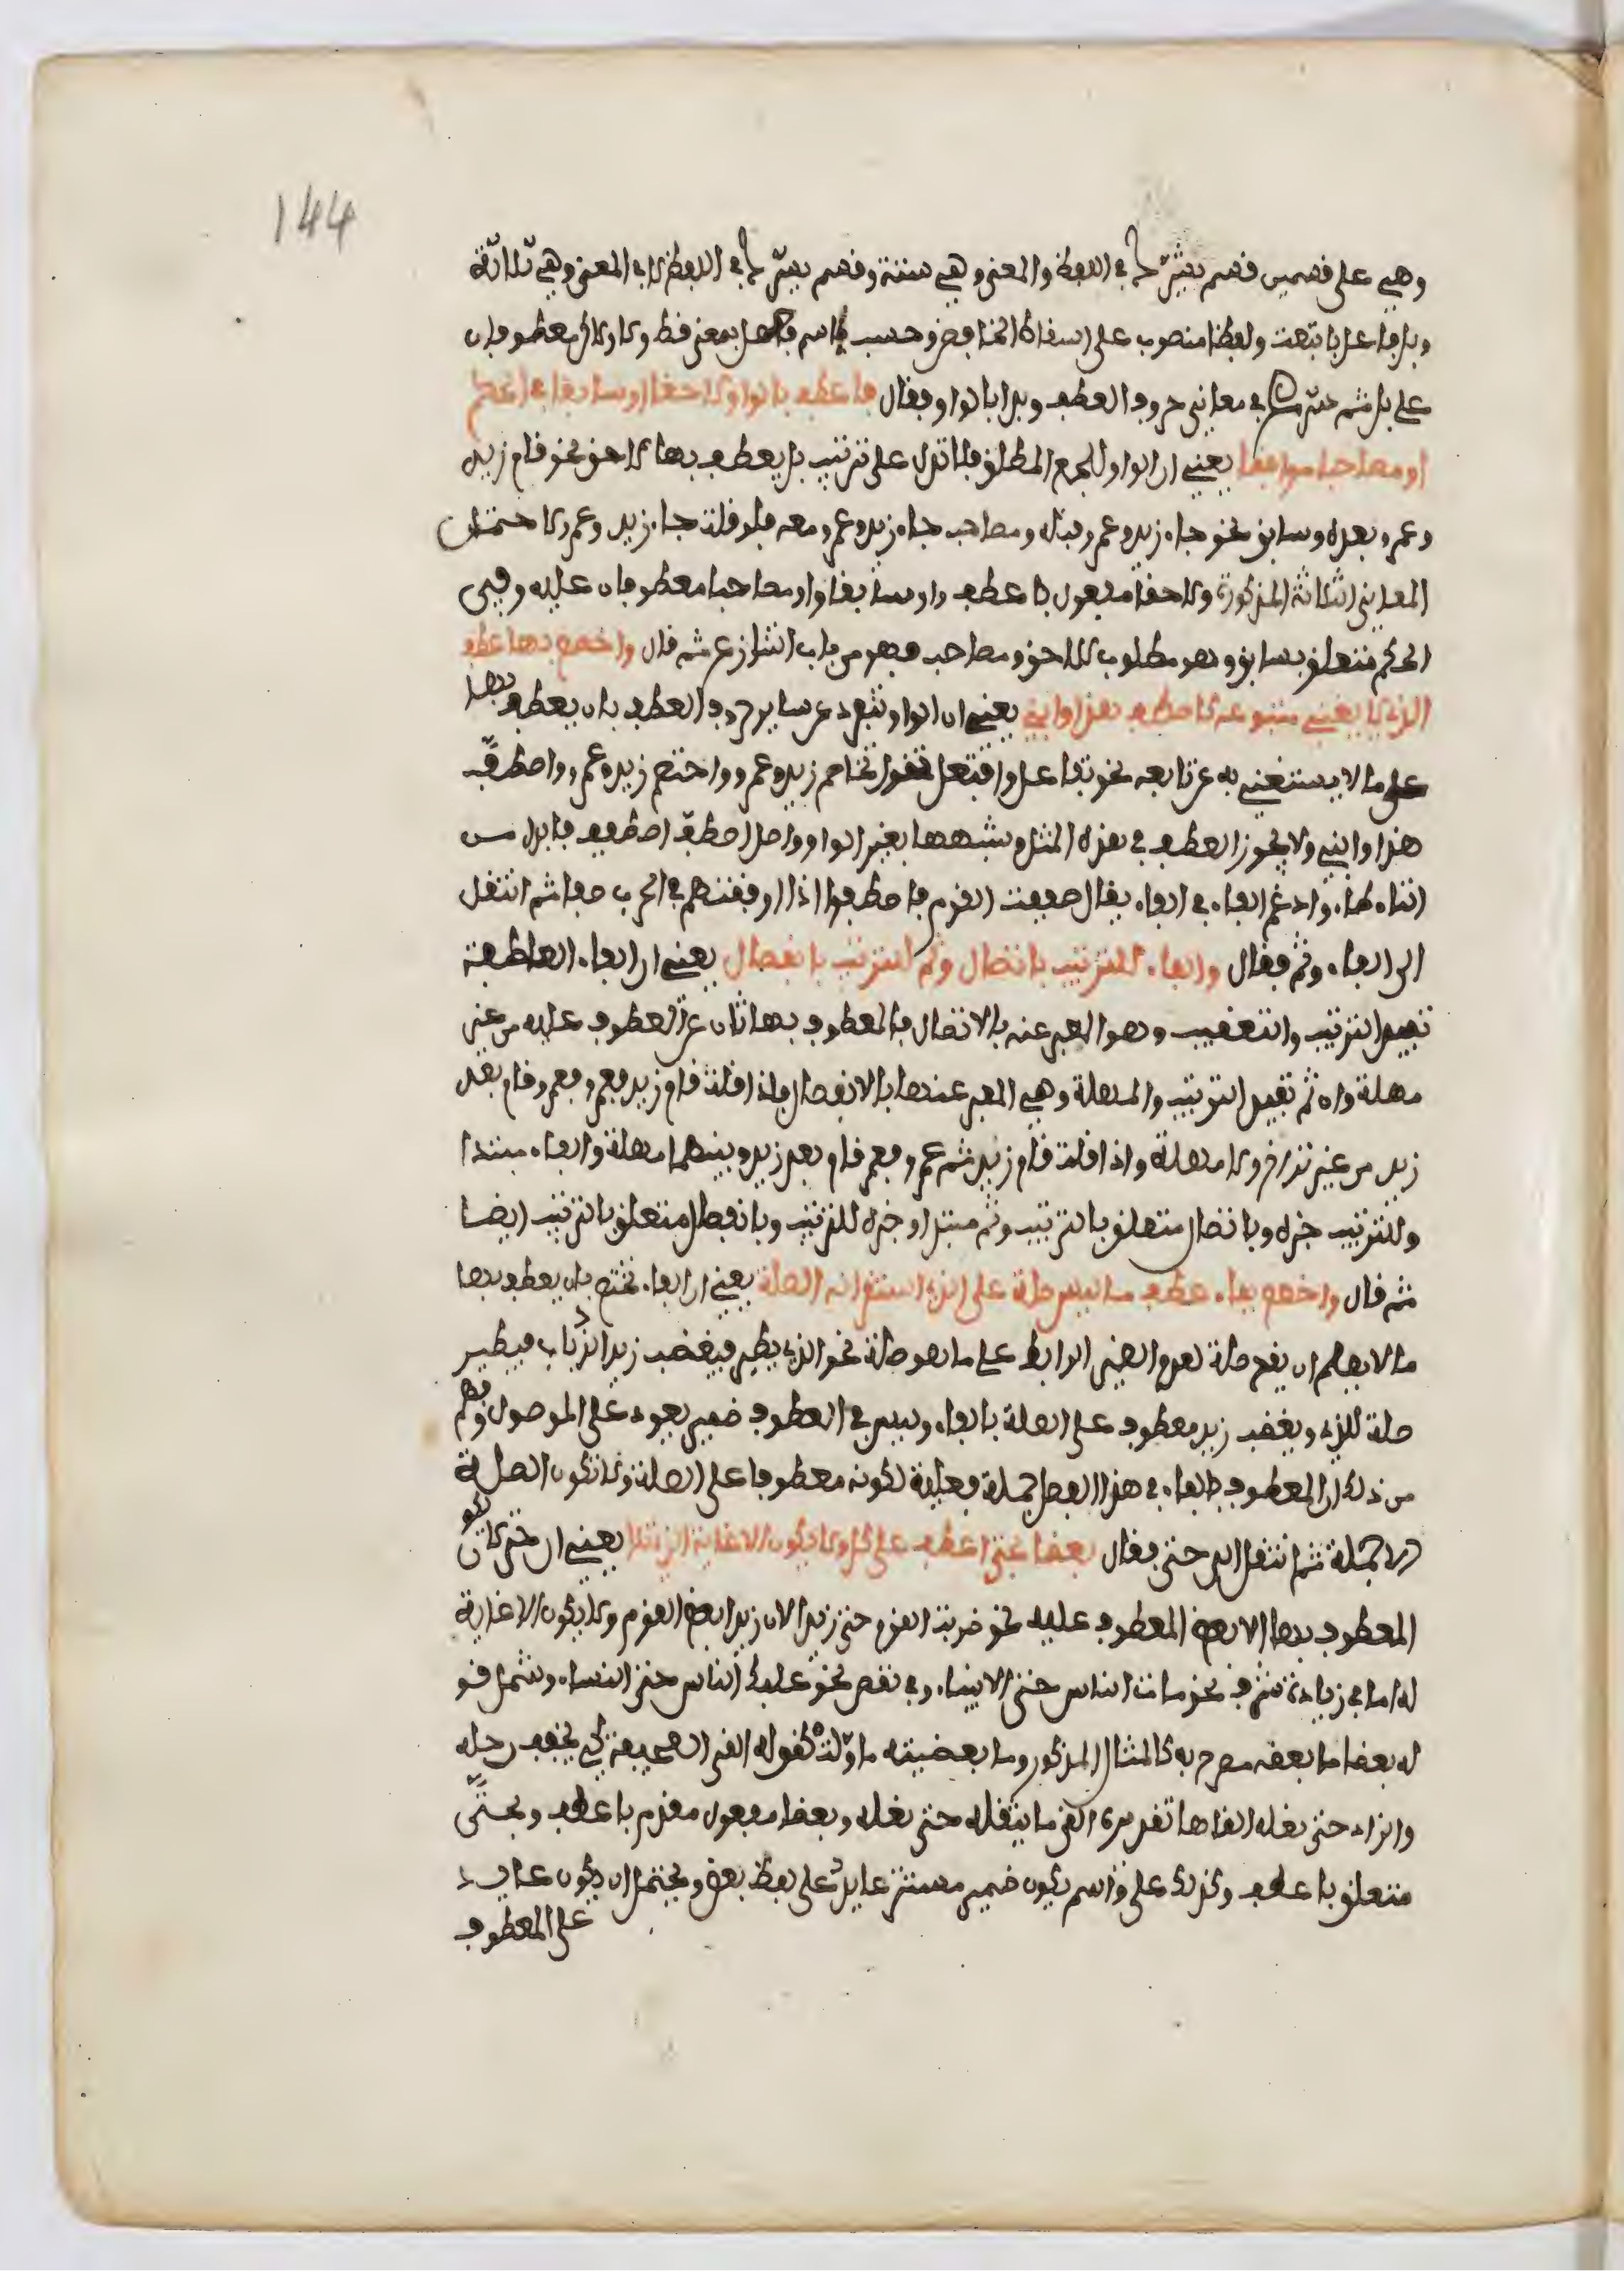 144
وهي على قسمين قسم يشرك في اللفظ والمعنى وهي ستة وقسم يشرك في اللفظ لا في المعنى وهي ثلاثة
وبل فاعل باتبعت ولفظا منصوب على اسقاط الخافض وحسب اسم فعل بمعنى قط ولا ولاكن معطوفان
على بل ثم شرع في معاني حروف العطف وبدا بالواو فقال فاعطف بالواو لاحقا او سابقا في الحكم
او مصاحبا موافقا يعني ان الواو للجمع المطلق فلا تدل على ترتيب بل يعطف بها لاحق نحو قام زيد
وعمرو بعده وسابق نحو جاء زيد وعمرو قبله ومصاحب جاء زيد وعمرو معه فلو قلت جاء زيد وعمرو لاحتمل
المعاني الثلاثة المذكورة ولاحقا مفعول باعطف واو سابقا واو مصاحبا معطوفان عليه وفي
الحكم متعلق بسابق وهو مطلوب للاحق ومصاحب فهو من باب التنازع ثم قال واخصص بها عطف
الذي لا يغني متبوعه كاصطف هذا وابني يعني ان الواو تنفرد عن ساير حروف العطف بان يعطف بها
على ما لا يستغني به عن تابعه نحو تفاعل وافتعل نحو تخاصم زيد وعمرو واختصم زيد وعمرو واصطف
هذا وابني ولا يجوز العطف في هذه المثل وشبهها بغير الواو واصل اصطف اصطفف فابدل من
التاء طاء وادغم الفاء في الفاء يقال صففت القوم فاصطفوا اذا اوقفتهم في الحرب صفا ثم انتقل
الى الفاء وثم فقال والفاء للترتيب باتصال وثم للترتيب بانفصال يعني ان الفاء العاطفة
تفيد الترتيب والتعقيب وهو المعبر عنه بالاتصال فالمعطوف بها ثان عن المعطوف عليه من غير
مهلة وان ثم تفيد الترتيب والمهلة وهي المعبر عنها بالانفصال فاذا قلت قام زيد فعمرو فعمرو قام بعد
زيد من غير تراخ ولا مهلة واذا قلت قام زيد ثم عمرو فعمرو قام بعد زيد وبينهما مهلة والفاء مبتدا
وللترتيب خبره وباتصال متعلق بالترتيب وثم مبتدا وخبره للترتيب وبانفصال متعلق بالترتيب ايضا
ثم قال واخصص بفاء عطف ما ليس صلة على الذي استقر انه الصلة يعني ان الفاء تختص بان يعطف بها
ما لا يصلح ان يقع صلة لعدم الضمير الرابط على ما هو صلة نحو الذي يطير فيغضب زيد الذباب فيطير
صلة للذي ويغضب زيد معطوف على الصلة بالفاء وليس في المعطوف ضمير يعود على الموصول وفهم
من ذلك ان المعطوف بالفاء في هذا الفصل جملة فعلية لكونه معطوفا على الصلة ولا تكون الصلة
الا جملة ثم انتقل الى حتى فقال بعضا بحتى اعطف على كل ولا يكون الا غاية الذي تلا يعني ان حتى لا يكون
المعطوف بها الا بعض المعطوف عليه نحو ضربت القوم حتى زيدا لان زيدا بعض القوم ولا يكون الا غاية
له اما في زيادة شرف نحو مات الناس حتى الانبياء وفي نقص نحو غلبك الناس حتى النساء وشمل قو
له بعضا ما بعضه مصرح به كالمثال المذكور وما بعضيته ماولة كقوله القى الصحيفة كي يخفف رحله
والزاد حتى نعله القاها تقديره القى ما يثقله حتى نعله وبعضا مفعول مقدم باعطف وبحتى
متعلق باعطف وكذلك على واسم يكون ضمير مستتر عايد على بعض ويحتمل ان يكون عايد
على المعطوف